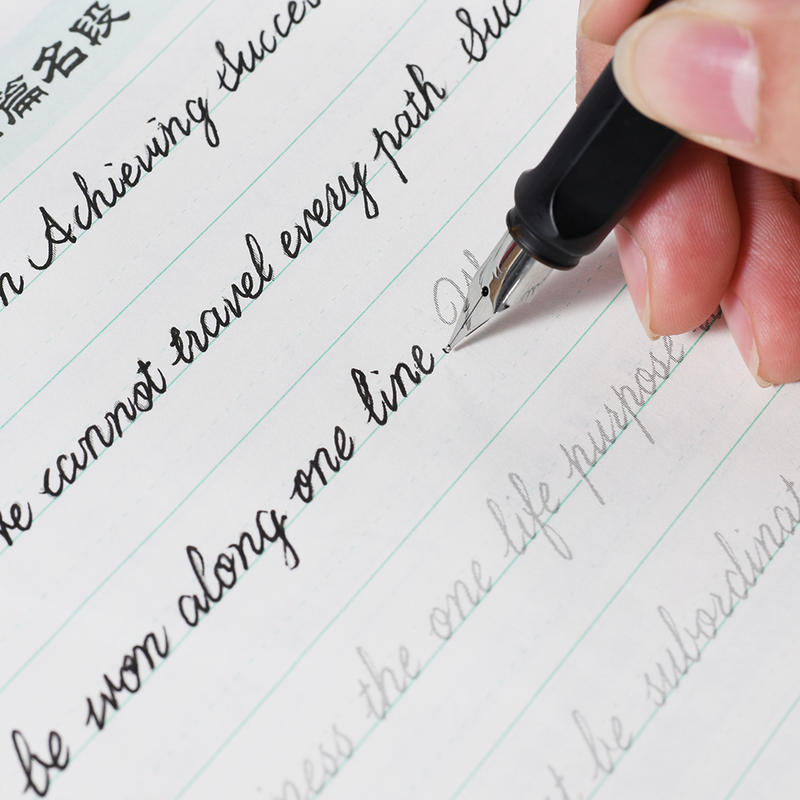 篇名段
Achieving Success
cannot travel every path Suc
be won along one line. We
ness the one life purpose
be subordinat